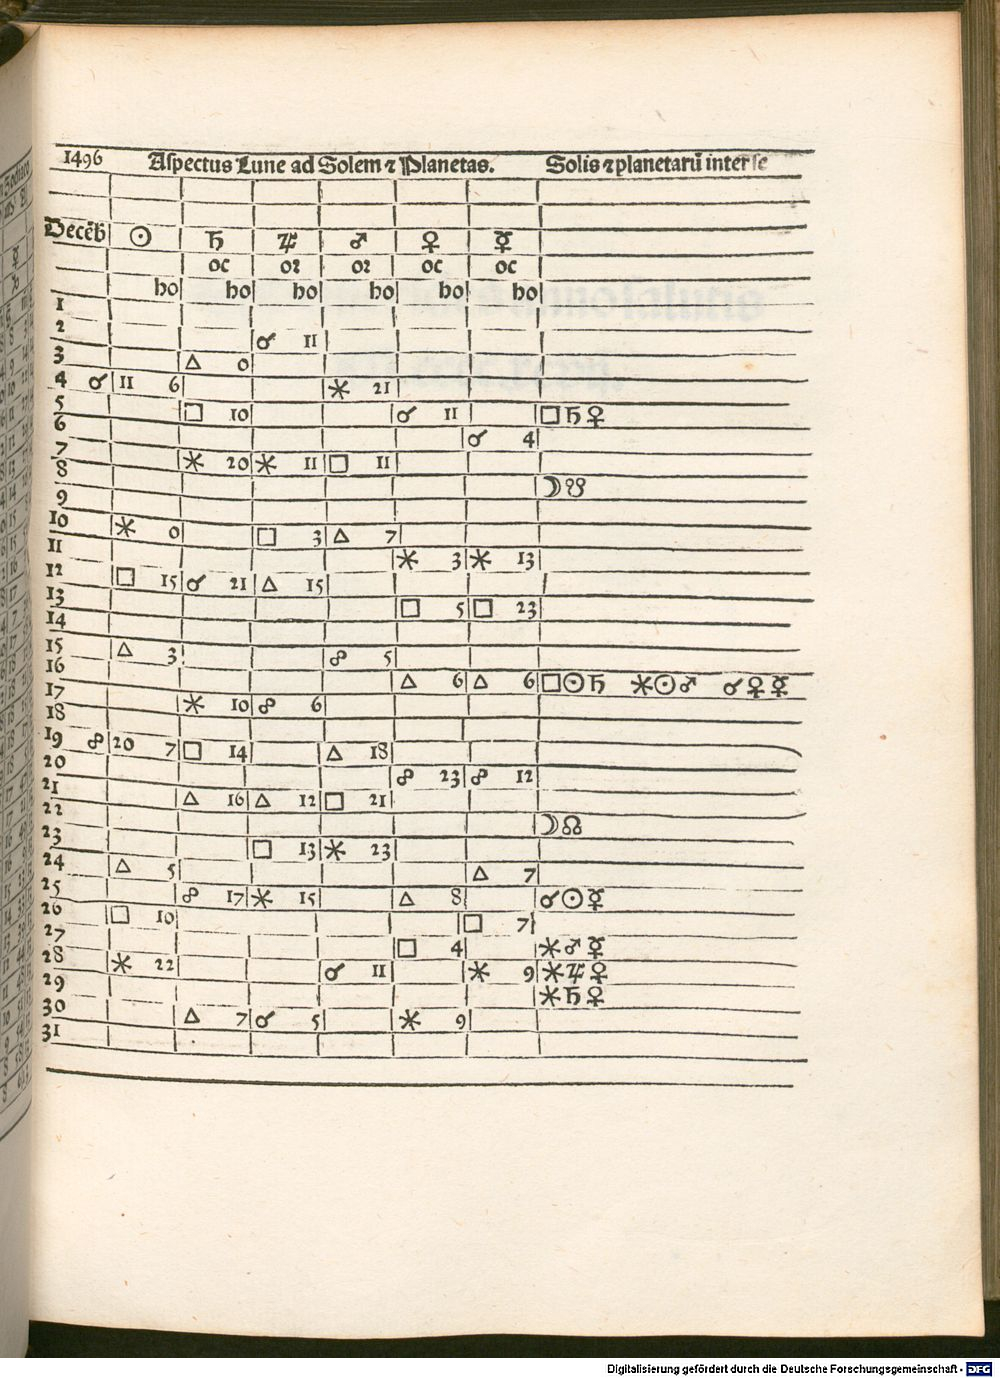 1496 Aſpectus Lune ad Solem ⁊ Planetas. Solis ⁊ planetarū inter ſe
Decēb ☉ ♄ ♃ ♂ ♀ ☿
oc oꝛ oꝛ oc oc
ho ho ho ho ho ho
1
2 ☌ 11
3 △ 0
4 ☌ 11 6 ⚹ 21
5 □ 10 ☌ 11 □ ♄ ♀
6 ☌ 4
7 ⚹ 20 ⚹ 11 □ 11
8 ☽ ☋
9
10 ⚹ 0 □ 3 △ 7
11 ⚹ 3 ⚹ 13
12 □ 15 ☌ 21 △ 15
13 □ 5 □ 23
14
15 △ 3 ☍ 5
16 △ 6 △ 6 □ ☉ ♄ ⚹ ☉ ♂ ☌ ♀ ☿
17 ⚹ 10 ☍ 6
18
19 ☍ 20 7 □ 14 △ 18
20 ☍ 23 ☍ 12
21 △ 16 △ 12 □ 21
22 ☽ ☊
23 □ 13 ⚹ 23
24 △ 5 △ 7
25 ☍ 17 ⚹ 15 △ 8 ☌ ☉ ☿
26 □ 10 □ 7
27 □ 4 ⚹ ♂ ☿
28 ⚹ 22 ☌ 11 ⚹ 9 ⚹ ♃ ♀
29 ⚹ ♄ ♀
30 △ 7 ☌ 5 ⚹ 9
31
Digitalisierung gefördert durch die Deutsche Forschungsgemeinschaft - DFG